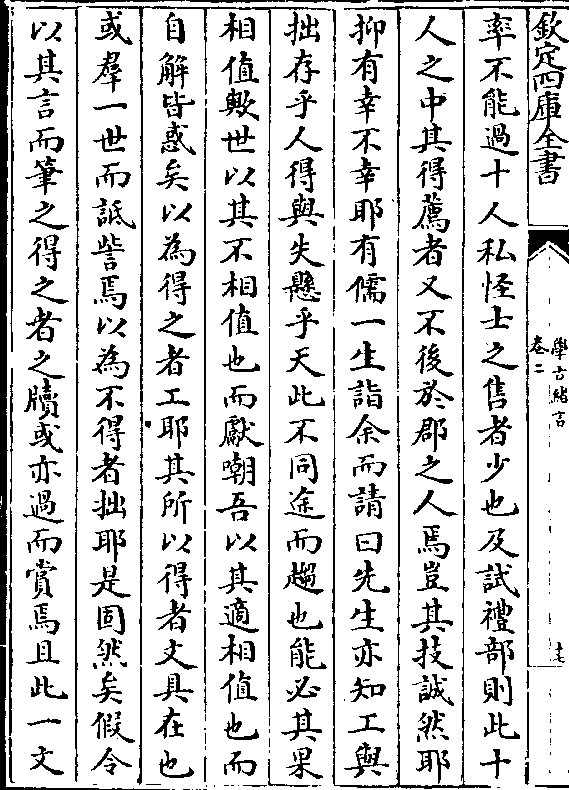 欽定四庫全書
學古緒言
卷二
十七
率不能過十人私怪士之售者少也及試禮部則此十
人之中其得薦者又不後於郡之人焉豈其技誠然耶
抑有幸不幸耶有儒一生詣余而請曰先生亦知工與
拙存乎人得與失懸乎天此不同途而趨也能必其果
相值歟世以其不相值也而獻嘲吾以其適相值也而
自解皆惑矣以為得之者工耶其所以得者文具在也
或羣一世而詆訾焉以為不得者拙耶是固然矣假令
以其言而筆之得之者之牘或亦過而賞焉且此一文